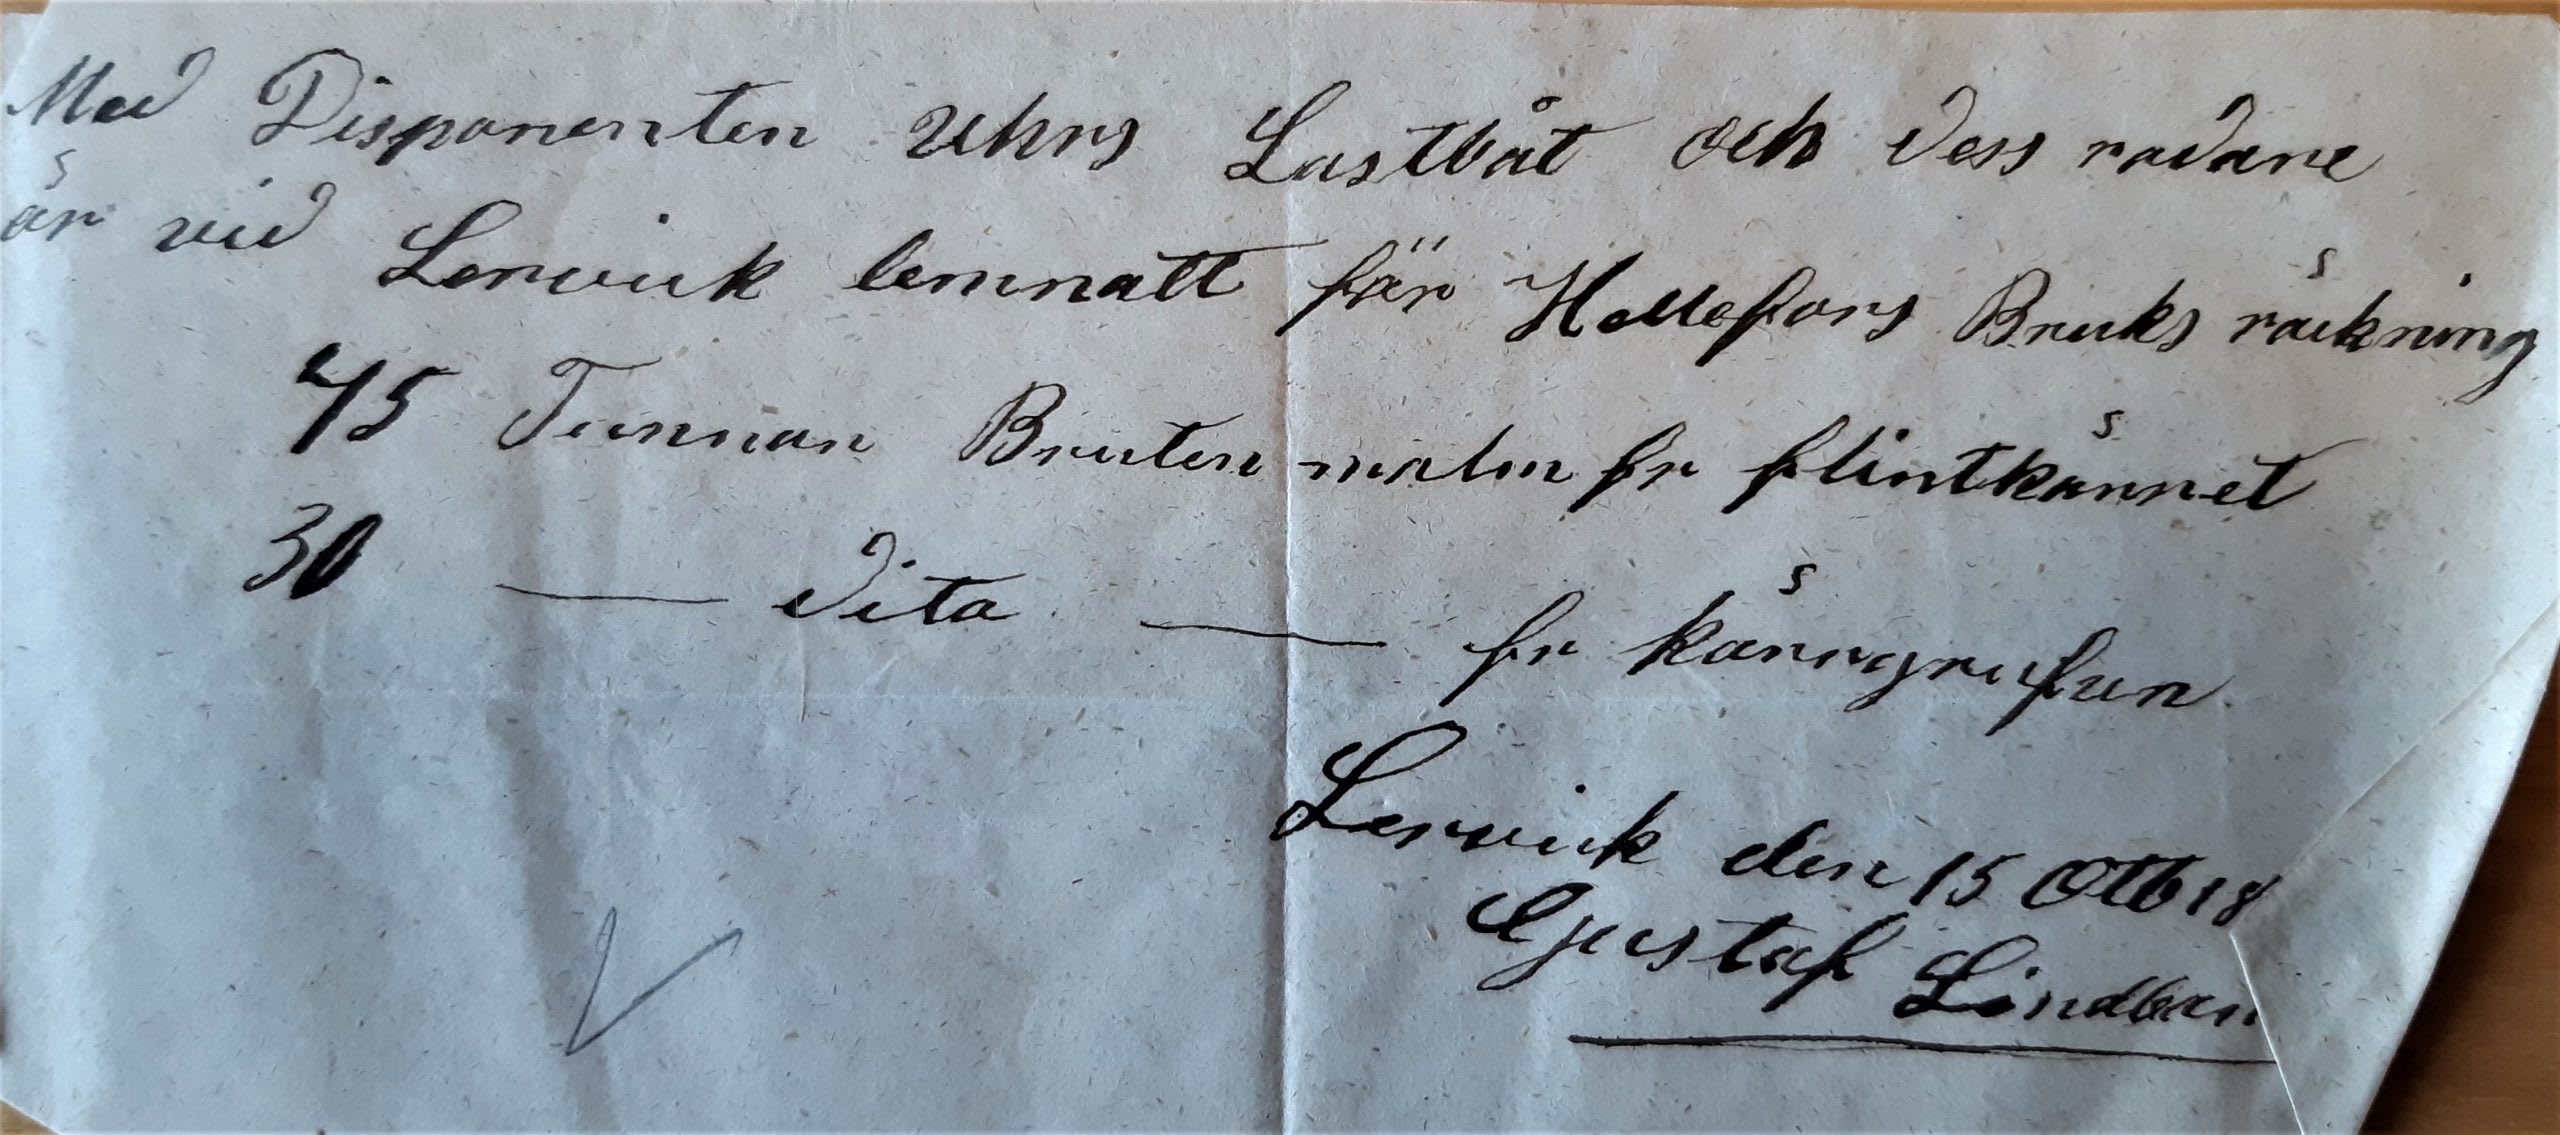 Med Disponenten Uhrs Lastbåt och dess rodare
är vid Lervik lemnatt för Hellefors Bruks räkning
45 Tunnor Bruten malm fr flintkärret
30 — dito — fr kärrgrufvan
Lervik den 15 Otb 18
Gustaf